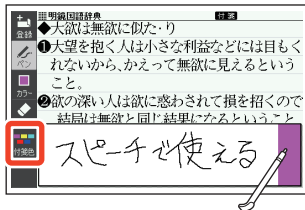 登録
明鏡国語辞典
付箋
◆大欲は無欲に似た・り
❶大望を抱く人は小さな利益などには目もく
れないから、かえって無欲に見えるという
こと。
❷欲の深い人は欲に惑わされて損を招くので
結局は無欲と同じ結果になるということ
ペン
カラー
付箋色
スピーチで使える